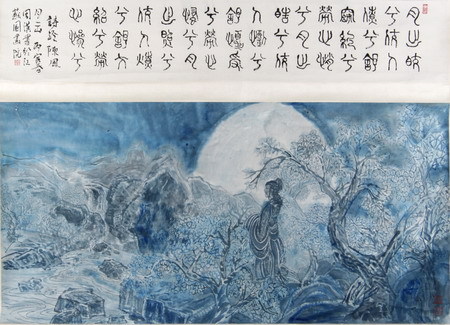 月出皎
兮佼人
僚兮舒
窈糾兮
勞心悄
兮月出
皓兮佼
人懰兮
舒懮受
兮勞心
慅兮月
出照兮
佼人燎
兮舒夭
紹兮勞
心慘兮
詩經陳風
月出丙寅
書於江
蘇國畫院